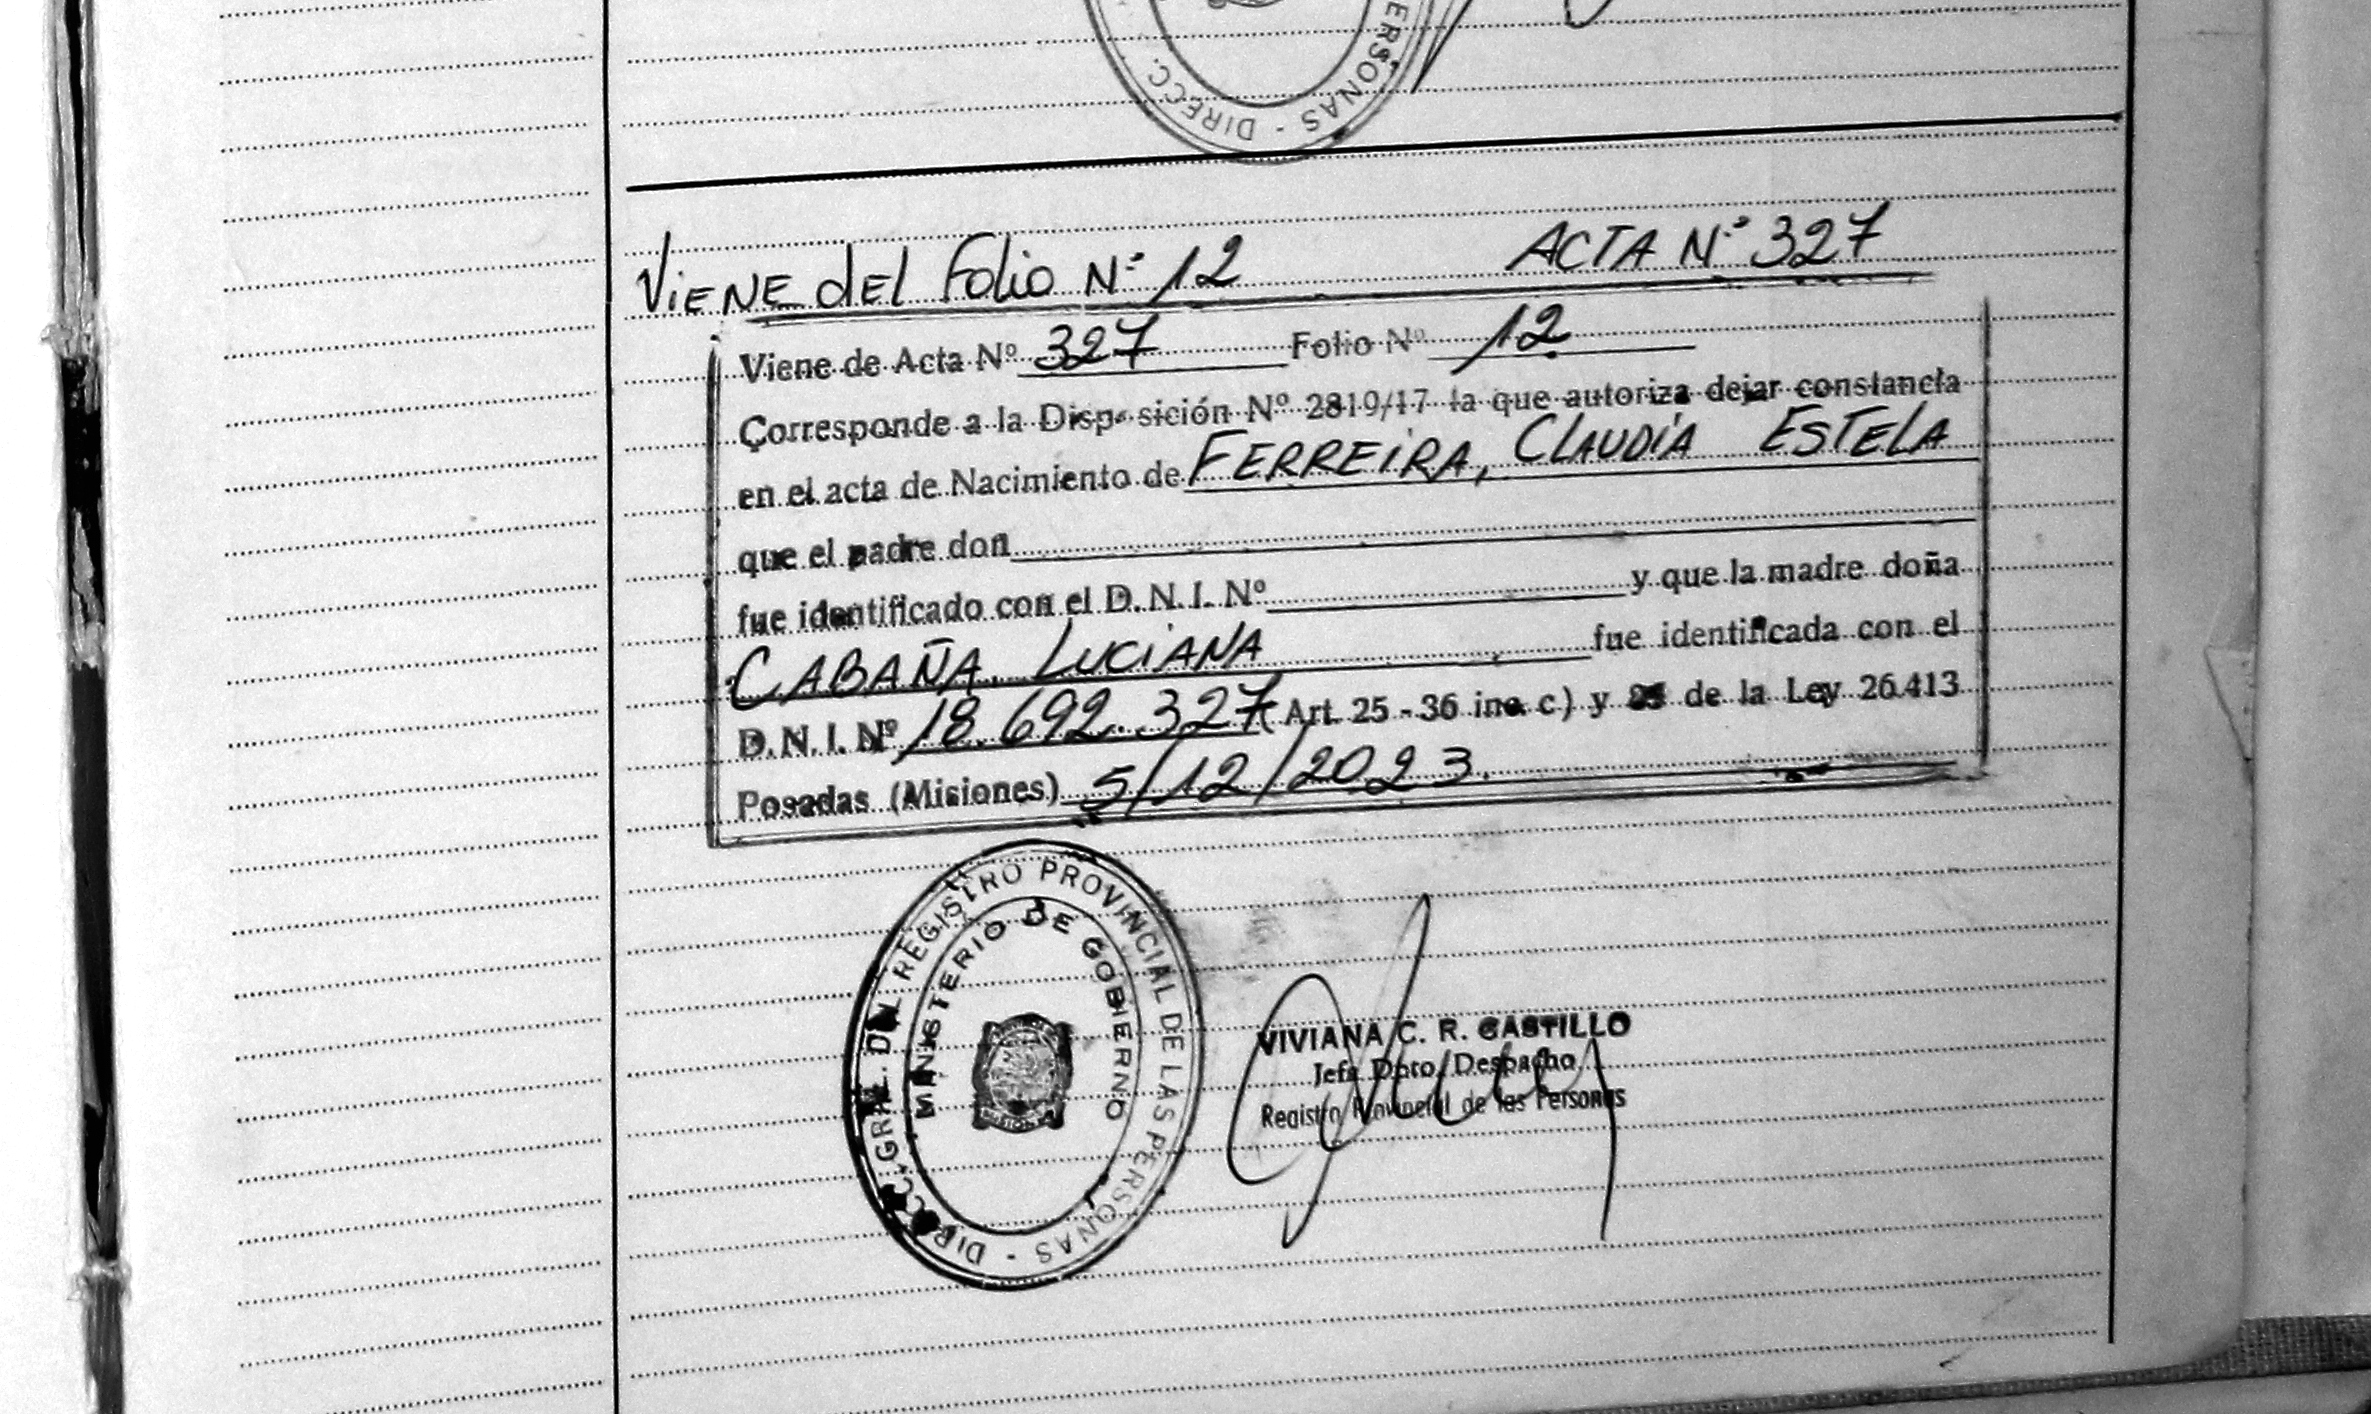 ERSONAS - DIRECC.
ViENE dEl Folio Nº 12 ACTA Nº 327
Viene de Acta Nº 327 Folio Nº 12
Corresponde a la Disposición Nº 2819/17 la que autoriza dejar constancia
en el acta de Nacimiento de FERREiRA, CLAUDiA ESTELA
que el padre don
fue identificado con el D. N. I. Nº y que la madre doña
CABAÑA, LUCiANA fue identificada con el
D. N. I. Nº 18.692.327 (Art. 25 - 36 inc. c) y de la Ley 26.413
Posadas (Misiones) 5/12/2023.
DIRECC. GRAL. DEL REGISTRO PROVINCIAL DE LAS PERSONAS -
MINISTERIO DE GOBIERNO
VIVIANA C. R. CASTILLO
Jefa Dpto. Despacho
Registro Provincial de las Personas